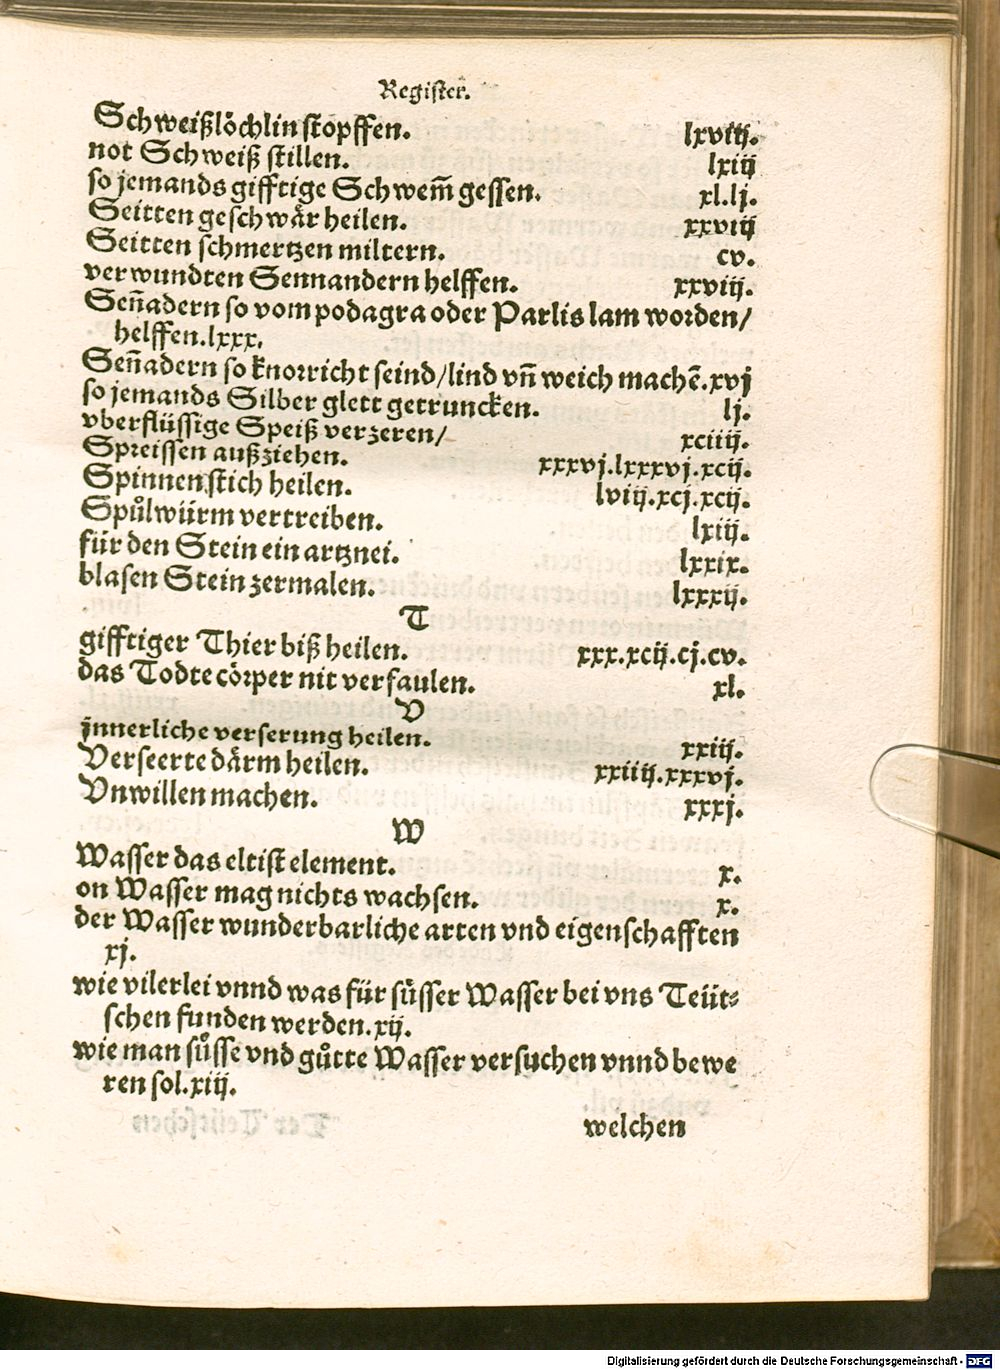 Register.
Schweißlöchlin stopffen. lxviij.
not Schweiß stillen. lxiij
so jemands gifftige Schwem̃ gessen. xl.lj.
Seitten geschwär heilen. xxviij
Seitten schmertzen miltern. cv.
verwundten Sennandern helffen. xxviij.
Señadern so vom podagra oder Parlis lam worden/
helffen.lxxx.
Señadern so knorricht seind/lind vñ weich machẽ.xvj
so jemands Silber glett getruncken. lj.
vberflüssige Speiß verzeren/ xciiij.
Spreissen außziehen. xxxvj.lxxxvj.xcij.
Spinnen stich heilen. lviij.xcj.xcij.
Spůlwürm vertreiben. lxiij.
für den Stein ein artznei. lxxix.
blasen Stein zermalen. lxxxij.
T
gifftiger Thier biß heilen. xxx.xcij.cj.cv.
das Todte cörper nit verfaulen. xl.
V
jnnerliche verserung heilen. xxiij.
Verseerte därm heilen. xxiiij.xxxvj.
Vnwillen machen. xxxj.
W
Wasser das eltist element. x.
on Wasser mag nichts wachsen. x.
der Wasser wunderbarliche arten vnd eigenschafften
xj.
wie vilerlei vnnd was für süsser Wasser bei vns Teüt⸗
schen funden werden.xij.
wie man sůsse vnd gůtte Wasser versuchen vnnd bewe
ren sol.xiij.
welchen
Digitalisierung gefördert durch die Deutsche Forschungsgemeinschaft - DFG